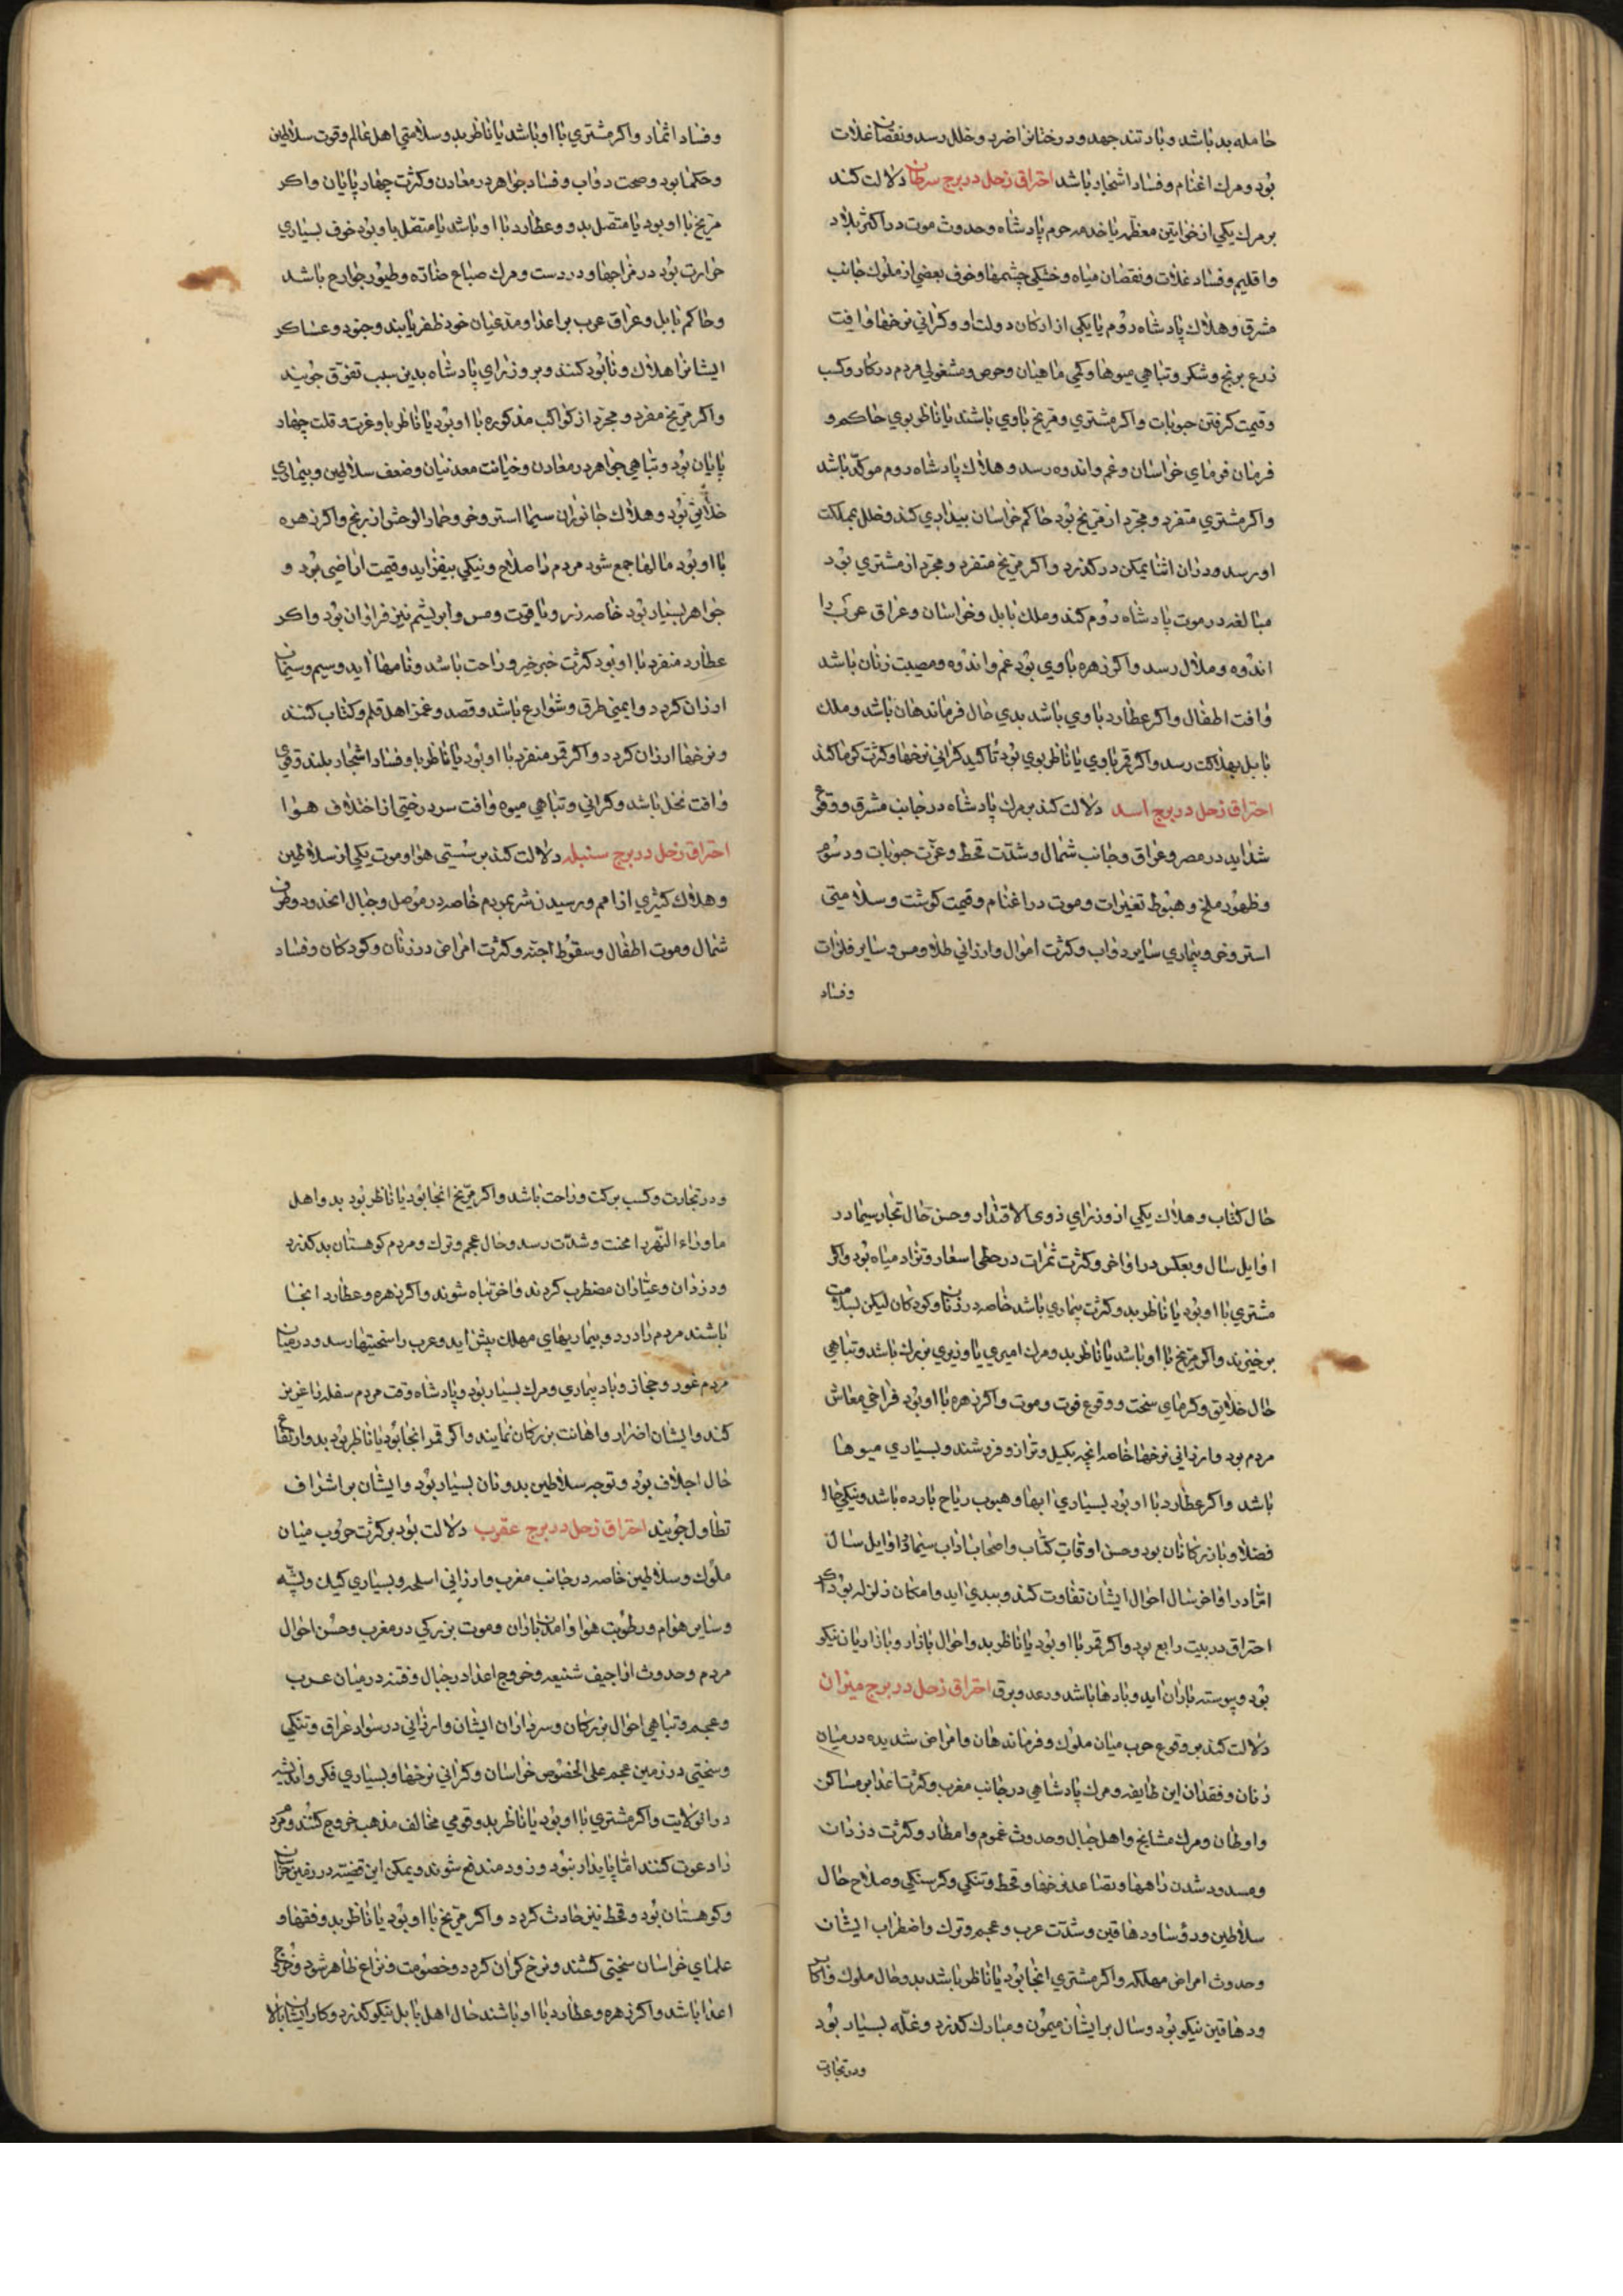 حامله بد باشد و باد تند جهد و درختانرا ضرر و خلل رسد و نقصان غلات
بود و مرك اغنام و فساد اشجار باشد احتراق زحل در برج سرطان دلالت كند
بر مرك يكي از خواتين معظمه يا خدمه حرم پادشاه و حدوث موت در اكثر بلاد
و اقليم و فساد غلات و نقصان مياه و خشكي چشمها و خوف بعضي از ملوك جانب
مشرق و هلاك پادشاه روم يا يكي از اركان دولت او و كراني نرخها و افت
زرع برنج و شكر و تباهي ميوها و كمي ماهيان و حرص و مشغولي مردم در كار و كسب
و قيمت كرفتن حبوبات و اكر مشتري و مريخ باوي باشند يا ناظر بوي حاكم و
فرمان فرماي خراسان و غم و اندوه رسد و هلاك پادشاه روم موكد باشد
و اكر مشتري متفرد و مجرد از مريخ بود حاكم خراسان بيدادي كند و خلل بمملكت
او رسد و دران اثنا يمكن در كذرد و اكر مريخ متفرد و مجرد از مشتري بود
مبالغه در موت پادشاه روم كند و ملك بابل و خراسان و عراق عرب را
اندوه و ملال رسد و اكر زهره باوي بود غم و اندوه و مصيبت زنان باشد
و افت اطفال و اكر عطارد باوي باشد بدي حال فرماندهان باشد و ملك
بابل بهلاكت رسد و اكر قمر باوي يا ناظر بوي بود تاكيد كراني نرخها و كثرت كرما كند
احتراق زحل در برج اسد دلالت كند بر مرك پادشاه در جانب مشرق و وقوع
شدايد در مصر و عراق و جانب شمال و شدت قحط و عزت حبوبات و رسوم
و ظهور ملخ و هبوط تغيرات و موت در اغنام و قيمت كوشت و سلامتي
استر و خر و بيماري ساير دواب و كثرت اموال و ارزاني طلا و مس و ساير فلزات
و فساد
و فساد اثمار و اكر مشتري با او باشد يا ناظر بد و سلامتي اهل عالم و قوت سلاطين
و حكما بود و صحت دواب و فساد جواهر در معادن و كثرت چهار پايان و اكر
مريخ با او بود يا متصل بدو و عطارد با او باشد يا متصل باو بود خوف بسياري
حرارت بود در مزاجها و درد ست و مرك صباع ضاده و طيور جوارح باشد
و حاكم بابل و عراق عرب بر اعدا و مدعيان خود ظفر يابند و جنود و عساكر
ايشانرا هلاك و نابود كنند و بر وزراي پادشاه بدين سبب تفوق جويند
و اكر مريخ مفرد و مجرد از كواكب مذكوره با او بود يا ناظر باو عزت و قلت چهار
پايان بود و تباهي جواهر در معادن و خيانت معدنيان و ضعف سلاطين و بيماري
خلايق بود و هلاك جانوران سيما استر و خر و حمار الوحش از رنج و اكر زهره
با او بود مالها جمع شود مردم را صلاح و نيكي بيفزايد و قيمت اراضي بود و
جواهر بسيار بود خاصه زر و ياقوت و مس و ابريشم نيز فراوان بود و اكر
عطارد منفرد با او بود كثرت خبر خير و راحت باشد و نامها ايد و سيم و سيماب
ارزان كردد و ايمني طرق و شوارع باشد و قصد و غمز اهل قلم و كتاب كنند
و نرخها ارزان كردد و اكر قمر منفرد با او بود يا ناظر باو فساد اشجار بلند و قوي
و افت نخل باشد و كراني و تباهي ميوه و افت سردرختي از اختلاف هوا
احتراق زحل در برج سنبله دلالت كند بر سستي هوا و موت يكي از سلاطين
و هلاك كثيري از امم و رسيدن شر بمردم خاصه در موصل و جبال انحدود و طرف
شمال و موت اطفال و سقوط اجنه و كثرت امراض در زنان و كودكان و فساد
حال كتاب و هلاك يكي از وزراي ذوي الاقتدار و حسن حال تجار سيما در
اوايل سال و بعكس در اواخر و كثرت ثمرات در حطي اسعار و تزاد مياه بود و اكر
مشتري با او بود يا ناظر بد و كثرت بيماري باشد خاصه در زنان و كودكان ليكن بسلامت
برخيزند و اكر مريخ با او باشد يا ناظر بد و مرك اميري يا وزيري بزرك باشد و تباهي
حال خلايق و كرماي سخت و وقوع فوت و موت و اكر زهره با او بود فراخي معاش
مردم بود و ارزاني نرخها خاصه انچه بكيل و ترازو فروشند و بسياري ميوها
باشد و اكر عطارد با او بود بسياري ابها و هبوب رياح بارده باشد و نيكي حال
فضلا و بازركانان بود و حسن اوقات كتاب و اصحاب اداب سيما در اوايل سال
اما در اواخر سال احوال ايشان تفاوت كند و ببدي ايد و امكان زلزله بود اكر
احتراق در بيت رابع بود و اكر قمر با او بود يا ناظر بد و احوال بازار و بازاريان نيكو
بود و پيوسته باران ايد و بادها باشد و رعد و برق احتراق زحل در برج ميزان
دلالت كند بر وقوع حرب ميان ملوك و فرماندهان و امراض شديده در ميان
زنان و فقدان اين طايفه و مرك پادشاهي در جانب مغرب و كثرت اعدا بر مساكن
و اوطان و مرك مشايخ و اهل جبال و حدوث غموم و امطار و كثرت دزدان
و مسدود شدن راهها و تصاعد نرخها و قحط و تنكي و كرسنكي و صلاح حال
سلاطين و رؤسا و دهاقين و شدت عرب و عجم و ترك و اضطراب ايشان
و حدوث امراض مهلكه و اكر مشتري انجا بود يا ناظر باشد بد و حال ملوك و اكابر
و دهاقين نيكو بود و سال بر ايشان ميمون و مبارك كذرد و غله بسيار بود
و در تجارت
و در تجارت و كسب بركت و راحت باشد و اكر مريخ انجا بود يا ناظر بود بد و اهل
ماوراء النهر را محنت و شدت رسد و حال عجم و ترك و مردم كوهستان بد كذرد
و دزدان و عياران مضطرب كردند و اخر تباه شوند و اكر زهره و عطارد انجا
باشند مردم را درد و بيماريهاي مهلك پيش ايد و عرب را سختيها رسد و در ميان
مردم غور و حجاز و باد بيماري و مرك بسيار بود و پادشاه وقت مردم سفله را عزيز
كند و ايشان اضرار و اهانت بزركان نمايند و اكر قمر انجا بود يا ناظر بود بد و ارتفاع
حال اجلاف بود و توجه سلاطين بدونان بسيار بود و ايشان بر اشراف
تطاول جويند احتراق زحل در برج عقرب دلالت بود بر كثرت حروب ميان
ملوك و سلاطين خاصه در جانب مغرب و ارزاني اسلحه و بسياري كيك و پشه
و ساير هوام و رطوبت هوا و امدن باران و موت بزركي در مغرب و حسن احوال
مردم و حدوث اراجيف شنيعه و خروج اعدا در جبال و فتنه در ميان عرب
و عجم و تباهي احوال بزركان و سرداران ايشان و ارزاني در سواد عراق و تنكي
و سختي در زمين عجم علي الخصوص خراسان و كراني نرخها و بسياري فكر و انديشه
در انولايت و اكر مشتري با او بود يا ناظر بد و قومي مخالف مذهب خروج كنند و مردم
را دعوت كنند اما پايدار نبود و زود مندفع شوند و يمكن اين قضيه در زمين خراسان
و كوهستان بود و قحط نيز حادث كردد و اكر مريخ با او بود يا ناظر بد و فقها و
علماي خراسان سختي كشند و نرخ كران كردد و خصومت و نزاع ظاهر شود و خروج
اعدا باشد و اكر زهره و عطارد با او باشند حال اهل بابل نيكو كذرد و كار ايشان بالا